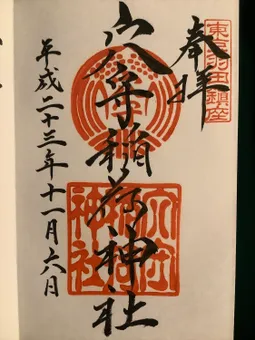 東京羽田鎮座
奉拝
穴守稲荷神社
穴守
稲荷
神社
平成二十三年十一月六日